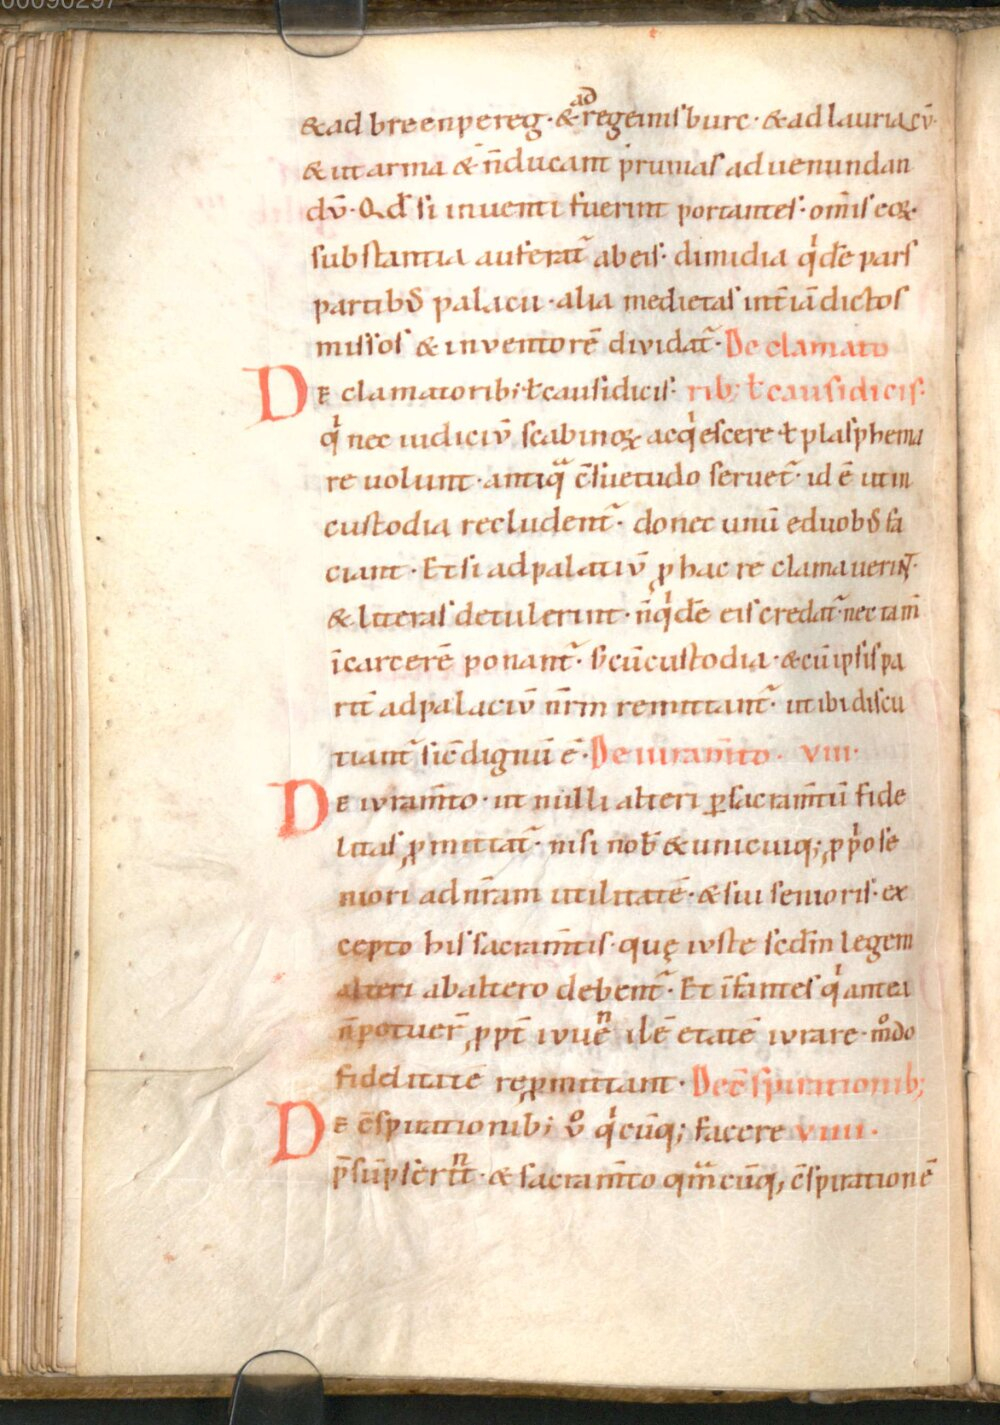 &ad breenpereg·&\ad/regenisburc·&ad lauriacū·
& ut arma & n̄ducant p̄runias aduenundan
dū·Qd̄ si inuenti fuerint portantes·om̄is eoꝝ
substantia auferat᷑ abeis·dimidia qͥdē pars
partibꝰ palacii·alia medietas int̄ iādictos
missos & inventorē dividat᷑·De clamato
De clamatorib;ꝉcausidicis· rib;ꝉcausidicis·
qͥ nec iudiciū scabinoꝝ acqͥescere ꝉ plasphema
re uolunt·antiqᵃ c̄suetudo seruet᷑·id ē ut in
custodia recludent᷑·donec unū eduobꝰ fa
ciant·Et si adpalatiū ꝓ hac re clamauerint·
& literas detulerint·n̄qͥdē eis credat᷑·nec tam̄
īcarcerē ponant᷑·s; cū custodia·&cū ipsis pa
rit̄ adpalaciū nr̄m remittant᷑·ut ibi discu
tiant᷑ sic̄ dignū ē·De iuram̄to· VIII·
De iuram̄to·ut nulli alteri ꝑsacram̄tū fide
litas ꝓmittat᷑·nisi nob̄ &unicuiq; ꝓpͥo se
niori adnr̄am utilitatē·&sui senioris·ex
cepto his sacram̄tis·quę iuste scd̄m legem
alteri abaltero debent᷑·Et īfantes qͥ antea
n̄potuer̄ ꝓpt̄ iuuen̄ilē etatē iurare·mͦdo
fidelitatē reꝓmittant·De c̄spirationib;
De c̄spirationib; uͦ qͥcūq; facere VIIII·
p̄sūpser̄nt·& sacram̄to qᵐcūq; c̄spirationē